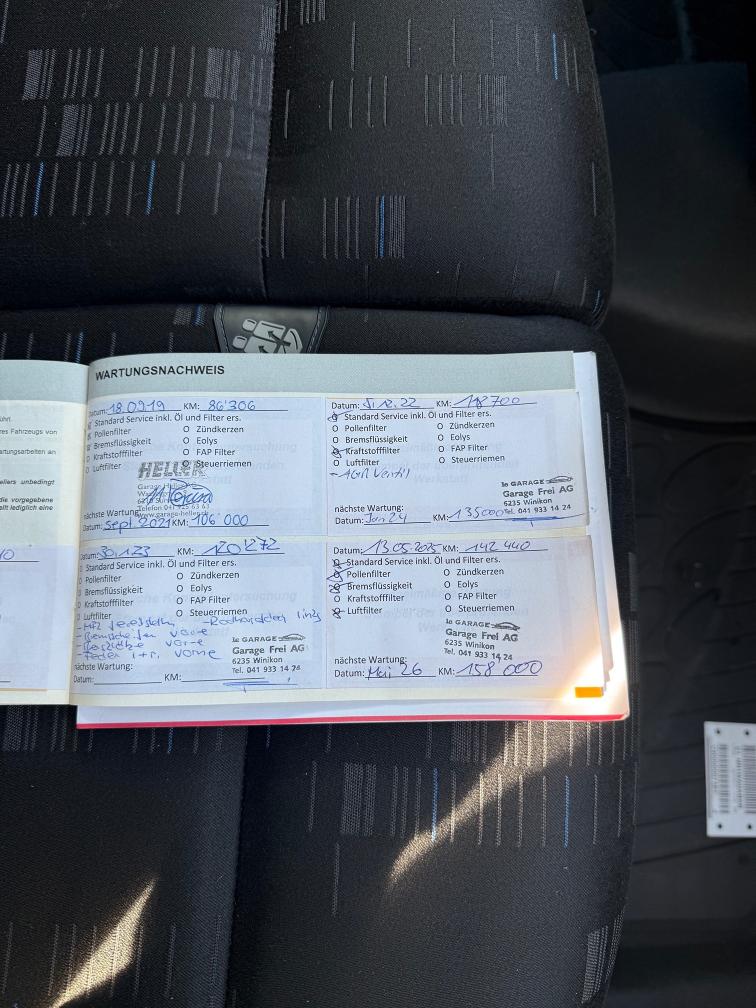 WARTUNGSNACHWEIS
führt.
res Fahrzeugs von
artungsarbeiten an
ellers unbedingt
die vorgegebene
llt lediglich eine
Datum: 18.09.19 KM: 86'306
Standard Service inkl. Öl und Filter ers.
Pollenfilter O Zündkerzen
Bremsflüssigkeit O Eolys
Kraftstofffilter O FAP Filter
Luftfilter Steuerriemen
HELLER
nächste Wartung:
Datum: Sept. 2021 KM: 106 000
Datum: 12.22 KM: 700
Standard Service inkl. Öl und Filter ers.
O Pollenfilter O Zündkerzen
O Bremsflüssigkeit O Eolys
Kraftstofffilter O FAP Filter
O Luftfilter O Steuerriemen
- AGR Ventil
le GARAGE
Garage Frei AG
6235 Winikon
Tel. 041 933 14 24
nächste Wartung:
Datum: Jan 24 KM: 135000
Datum: 30.1.23 KM: 120'272
Standard Service inkl. Öl und Filter ers.
Pollenfilter O Zündkerzen
Bremsflüssigkeit O Eolys
Kraftstofffilter O FAP Filter
Luftfilter O Steuerriemen
links
- Bremsscheiben vorne
vorne
- Federn l+r. vorne
le GARAGE
Garage Frei AG
6235 Winikon
Tel. 041 933 14 24
nächste Wartung:
Datum: KM:
Datum: 13.05.2025 KM: 142 440
Standard Service inkl. Öl und Filter ers.
Pollenfilter O Zündkerzen
Bremsflüssigkeit O Eolys
O Kraftstofffilter O FAP Filter
Luftfilter O Steuerriemen
le GARAGE
Garage Frei AG
6235 Winikon
Tel. 041 933 14 24
nächste Wartung:
Datum: Mai 26 KM: 158 000